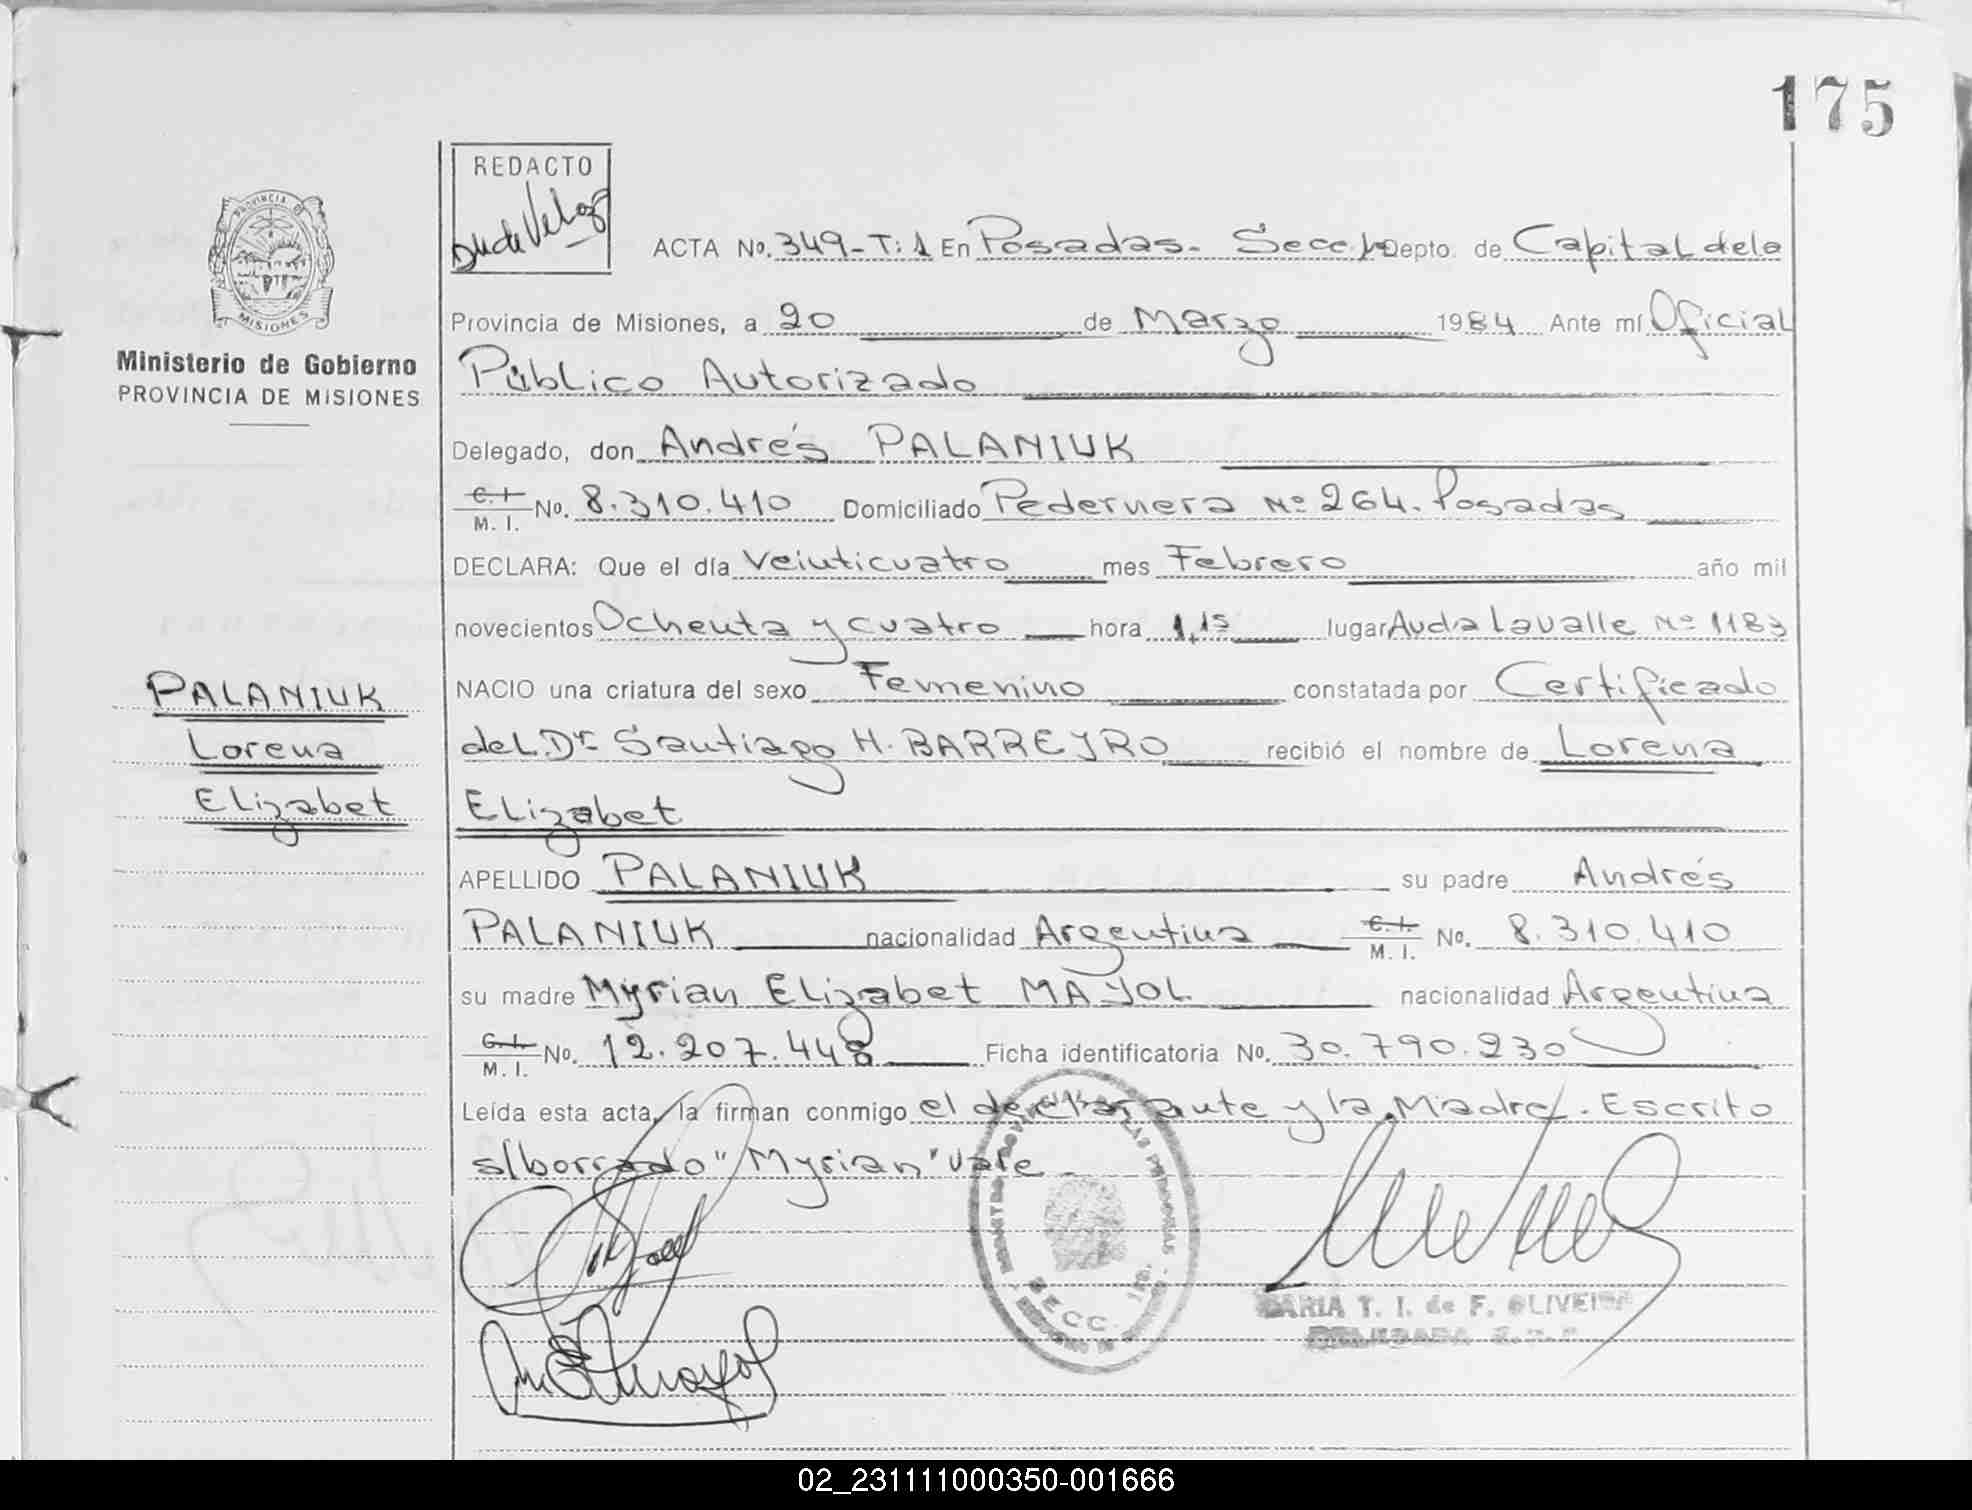 175
REDACTO
PROVINCIA DE
MISIONES
ACTA No. 349-T:1 En Posadas- Secc. 1a Depto. de Capital de la
Provincia de Misiones, a 20 de Marzo 1984 Ante mí Oficial
Ministerio de Gobierno
PROVINCIA DE MISIONES
Público Autorizado
Delegado, don Andrés PALANIUK
C. I. M. I. No. 8.310.410 Domiciliado Pedernera Nº 264. Posadas
DECLARA: Que el día Veinticuatro mes Febrero año mil
novecientos Ochenta y cuatro hora 1,15 lugar Avda Lavalle Nº 1183
PALANIUK
Lorena
Elizabet
NACIO una criatura del sexo Femenino constatada por Certificado
del Dr Santiago H. BARREYRO recibió el nombre de Lorena
Elizabet
APELLIDO PALANIUK su padre Andrés
PALANIUK nacionalidad Argentina C. I. M. I. No. 8.310.410
su madre Myrian Elizabet MAYOL nacionalidad Argentina
C. I. M. I. No. 12.207.448 Ficha identificatoria No. 30.790.230
Leída esta acta, la firman conmigo el declarante y la Madre. Escrito
s/borrado "Myrian" Vale
SECC. 1ra.
T. I. de F. OLIVEIRA
02_231111000350-001666